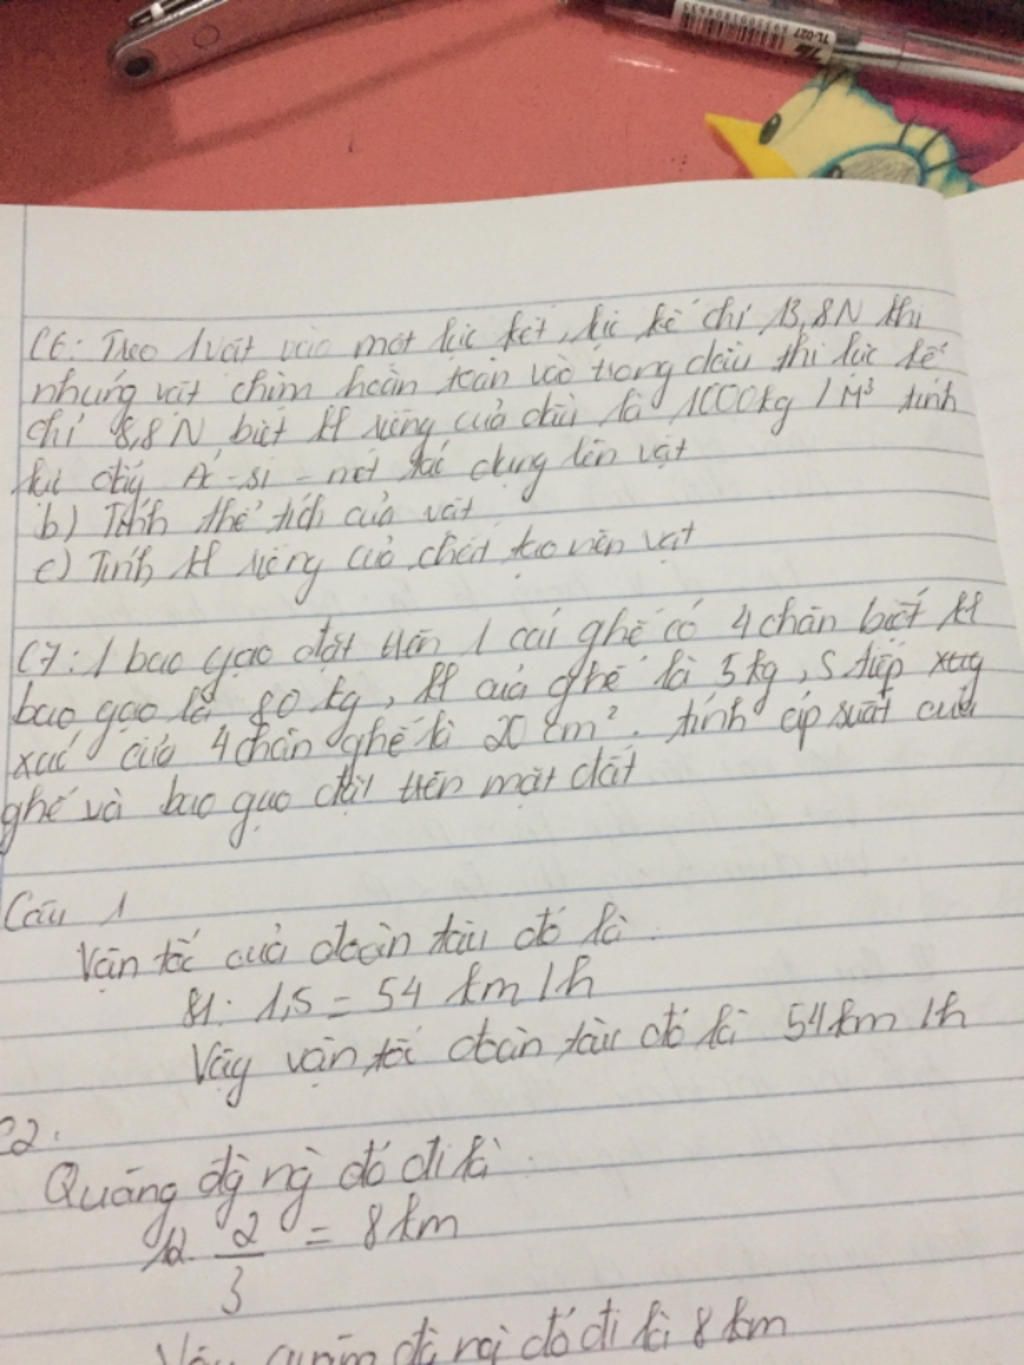 TL-027
C6: Treo 1 vật vào một lực kết, lực kế chỉ 13,8N khi
nhúng vật chìm hoàn toàn vào trong dầu thì lực kế
chỉ 8,8N biết kl riêng của dầu là 1000kg/m³ tính
lực đẩy Ác-si-mét tác dụng lên vật
b) Tính thể tích của vật
c) Tính kl riêng của chất tạo nên vật
C7: 1 bao gạo đặt trên 1 cái ghế có 4 chân biết kl
bao gạo là 80 kg, kl của ghế là 5 kg, S tiếp
xúc của 4 chân ghế là 20 cm². tính áp suất của
ghế và bao gạo đặt trên mặt đất
Câu 1
Vận tốc của đoàn tàu đó là
81: 1,5 = 54 km/h
Vậy vận tốc đoàn tàu đó là 54 km/h
C2:
Quãng đg ng đó đi là
12. 2/3 = 8 km
đó đi là 8 km